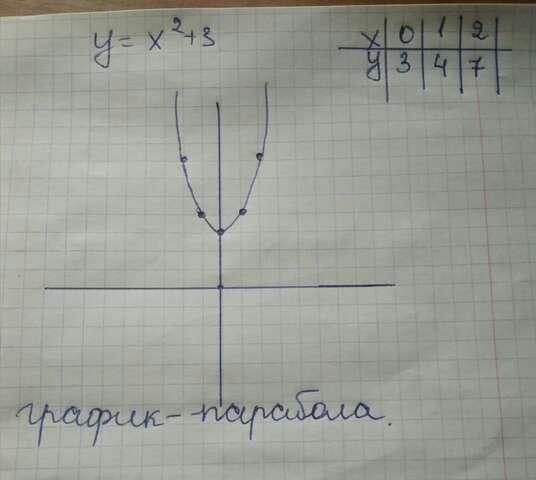 y = x²+3
x 0 1 2
y 3 4 7
график - парабола.